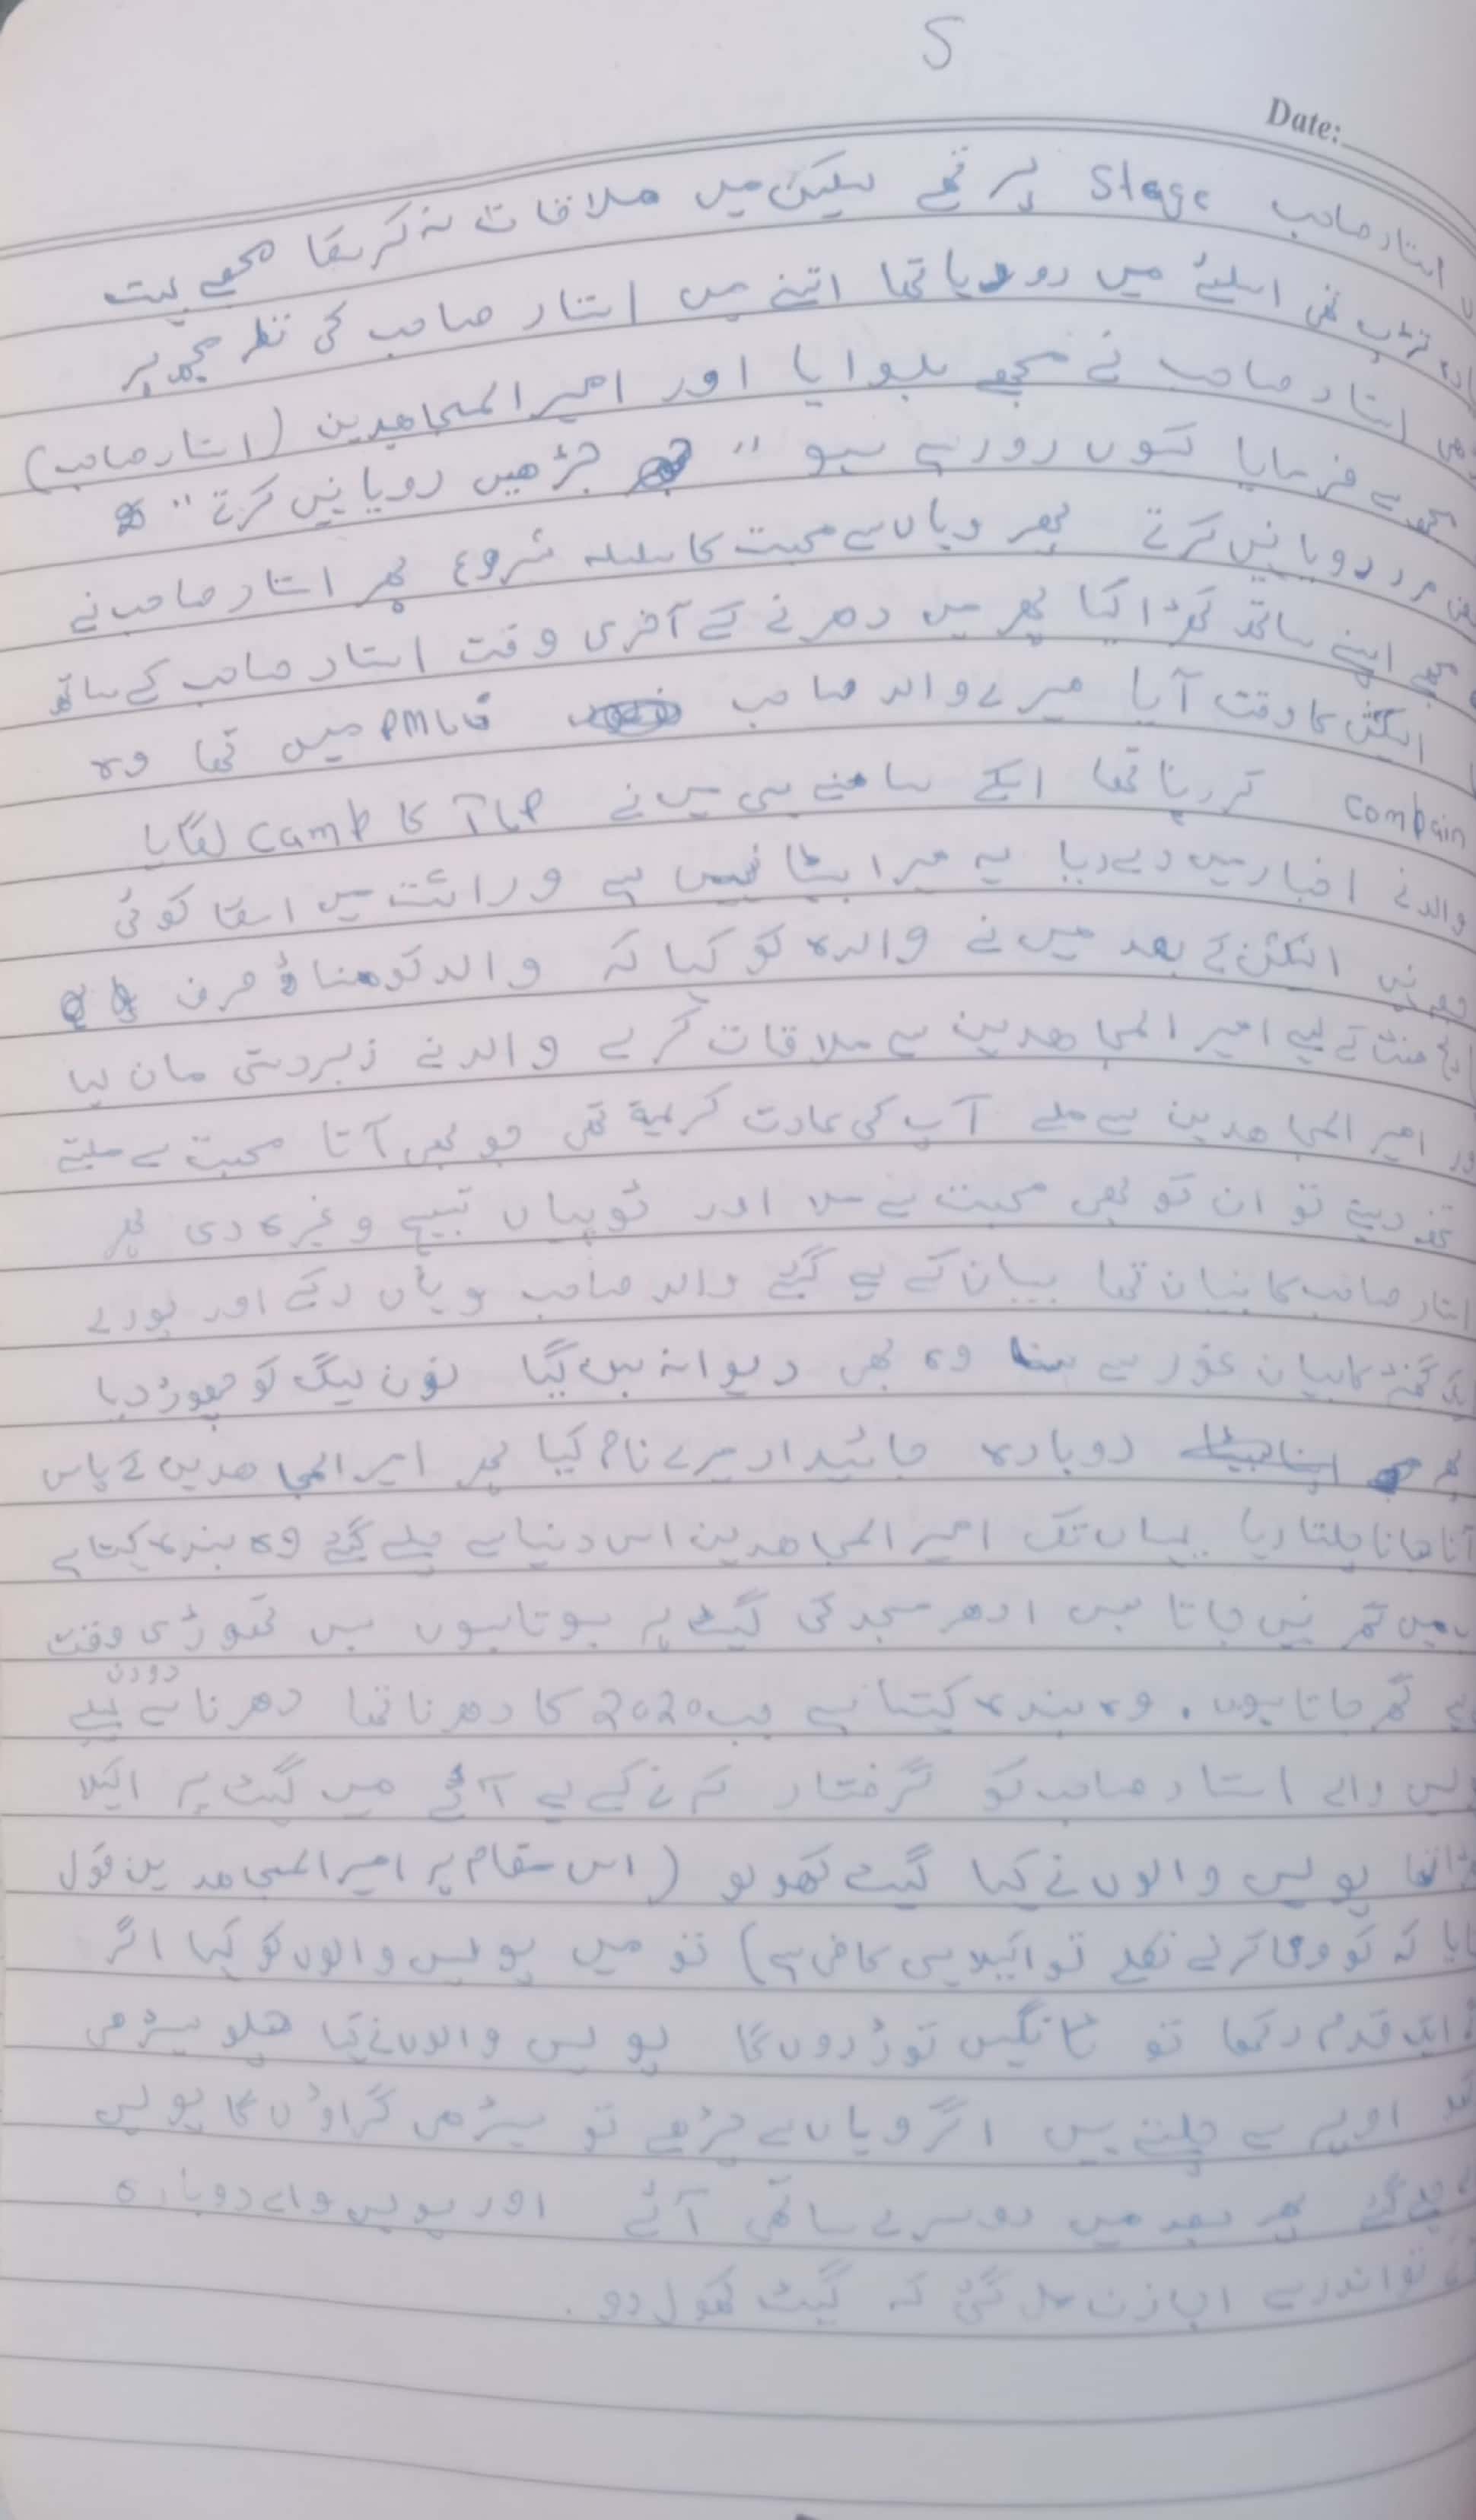 5
Date:
استاد صاحب Stage پر تھے لیکن میں ملاقات نہ کرسقا مجھے بہت
تڑپ تھی اسلئے میں رو دیا تھا اتنے میں استاد صاحب کی نظر مجھ پر
استاد صاحب نے مجھے بلوایا اور امیر المجاھدین (استاد صاحب)
فرمایا کیوں رو رہے ہو " جڑھیں رویا نہیں کرتے "
مرد رویا نہیں کرتے پھر وہاں سے محبت کا سلسلہ شروع پھر استاد صاحب نے
اپنے ساتھ کھڑا کیا پھر میں دھرنے کے آخری وقت استاد صاحب کے ساتھ
الیکشن کا وقت آیا میرے والد صاحب PMLN میں تھا وہ
Combain کر رہا تھا انکے سامنے ہی میں نے TLP کا Camp لگایا
والد نے اخبار میں دے دیا یہ میرا بیٹا نہیں ہے وراثت میں اسقا کوئی
نہیں الیکشن کے بعد میں نے والدہ کو کہا کہ والد کو مناؤ صرف
منٹ کے لیے امیر المجاھدین سے ملاقات کرلے والد نے زبردستی مان لیا
امیر المجاھدین سے ملے آپ کی عادت کریمۃ تھی جو بھی آتا محبت سے ملتے
تحفہ دیتے تو ان کو بھی محبت سے ملا اور ٹوپیاں تسبیح وغیرہ دی پھر
استاد صاحب کا بیان تھا بیان کے لیے گئے والد صاحب وہاں رکے اور پورے
گھنٹے کا بیان غور سے سنا وہ بھی دیوانہ بن گیا نون لیگ کو چھوڑ دیا
پھر دوبارہ جائیداد میرے نام کیا پھر امیر المجاھدین کے پاس
آنا جانا چلتا رہا یہاں تک امیر المجاھدین اس دنیا سے چلے گئے وہ بندہ کہتا ہے
میں گھر نہیں جاتا میں ادھر مسجد کی گیٹ پر ہوتا ہوں بس تھوڑی وقت
گھر جاتا ہوں . وہ بندہ کہتا ہے جب 2020 کا دھرنا تھا دھرنا سے دو دن پہلے
پولیس والے استاد صاحب کو گرفتار کرنے کے لیے آئے میں گیٹ پر اکیلا
تھا پولیس والوں نے کہا گیٹ کھولو (اس مقام پر امیر المجاھدین قول
کہ تو وفا کرنے نکلے تو اکیلا ہی کافی ہے) تو میں پولیس والوں کو کہا اگر
ایک قدم رکھا تو ٹانگیں توڑ دوں گا پولیس والوں نے کہا چلو سیڑھی
اوپر سے چلتے ہیں اگر وہاں سے چڑھے تو سیڑھی گراؤں گا پولیس
چلے گئے پھر بعد میں دوسرے ساتھی آئے اور پولیس والے دوبارہ
تو اندر سے اب اذن مل گئی کہ گیٹ کھول دو .